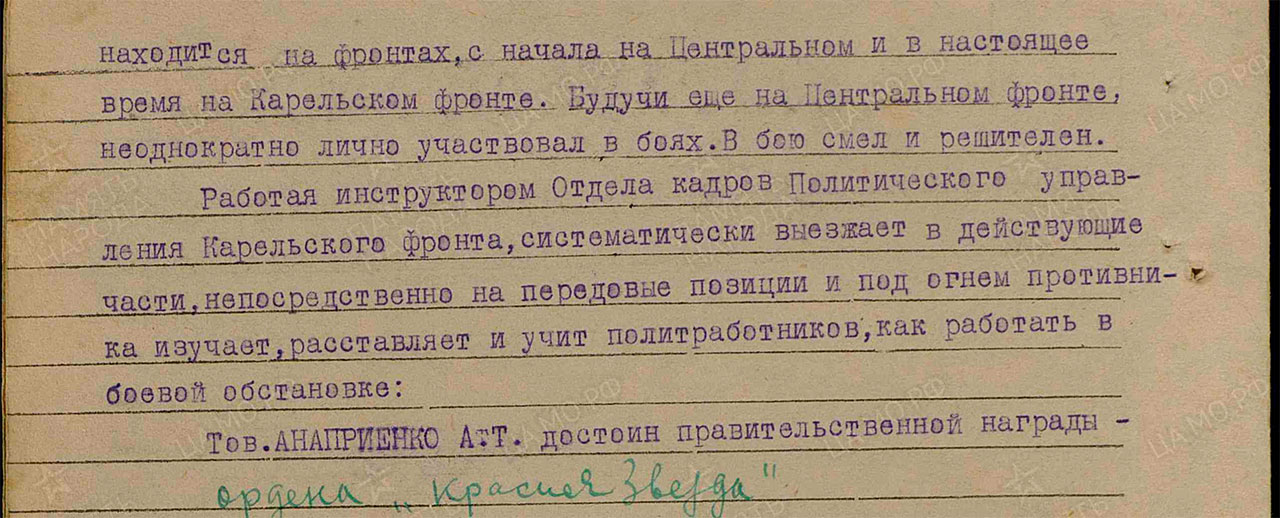 находится на фронтах,с начала на Центральном и в настоящее
время на Карельском фронте. Будучи еще на Центральном фронте,
неоднократно лично участвовал в боях.В бою смел и решителен.
Работая инструктором Отдела кадров Политического управ-
ления Карельского фронта,систематически выезжает в действующие
части,непосредственно на передовые позиции и под огнем противни-
ка изучает,расставляет и учит политработников,как работать в
боевой обстановке:
Тов.АНАПРИЕНКО А.Т. достоин правительственной награды -
ордена „Красная Звезда"